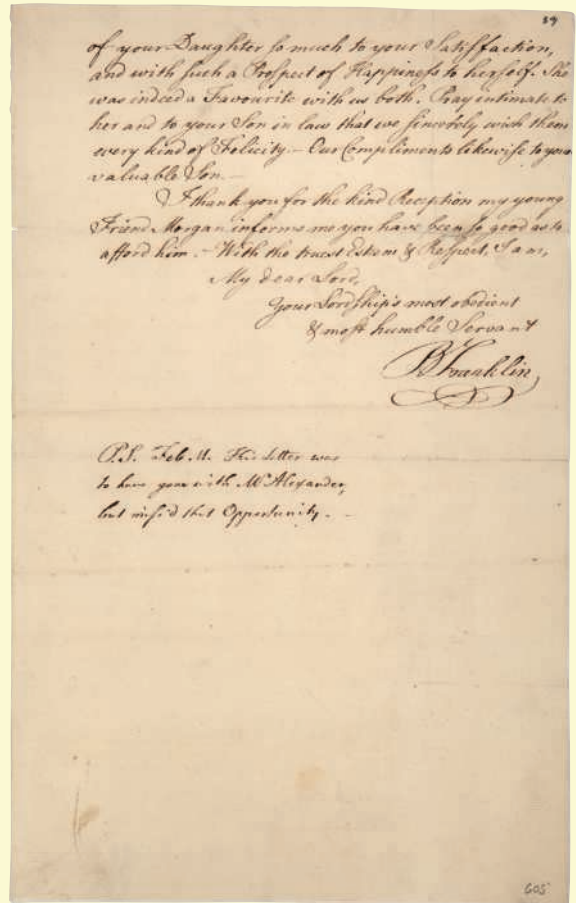 39
of your Daughter so much to your Satisfaction,
and with such a Prospect of Happiness to herself. She
was indeed a Favourite with us both. Pray intimate to
her and to your Son in law that we sincerely wish them
every kind of Felicity.— Our Compliments likewise to your
valuable Son.—
I thank you for the kind Reception my young
Friend Morgan informs me you have been so good as to
afford him.— With the truest Esteem & Respect, I am,
My dear Lord,
Your Lordship's most obedient
& most humble Servant
B Franklin
P.S. Feb. 11. This Letter was
to have gone with Mr Alexander,
but miss'd that Opportunity.—
605